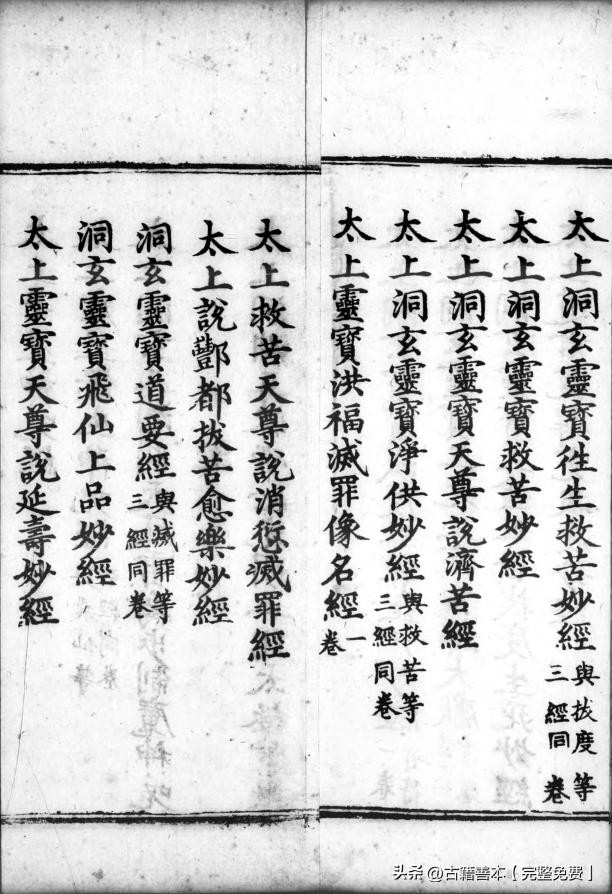 太上洞玄靈寶徃生救苦妙經與拔度等三經同卷
太上洞玄靈寶救苦妙經
太上洞玄靈寶天尊說濟苦經
太上洞玄靈寶淨供妙經與救苦等三經同卷
太上靈寶洪福滅罪像名經一卷
太上救苦天尊說消愆滅罪經
太上說酆都拔苦愈樂妙經
洞玄靈寶道要經與滅罪等三經同卷
洞玄靈寶飛仙上品妙經
太上靈寶天尊說延壽妙經
头条@古籍善本【完整免费】